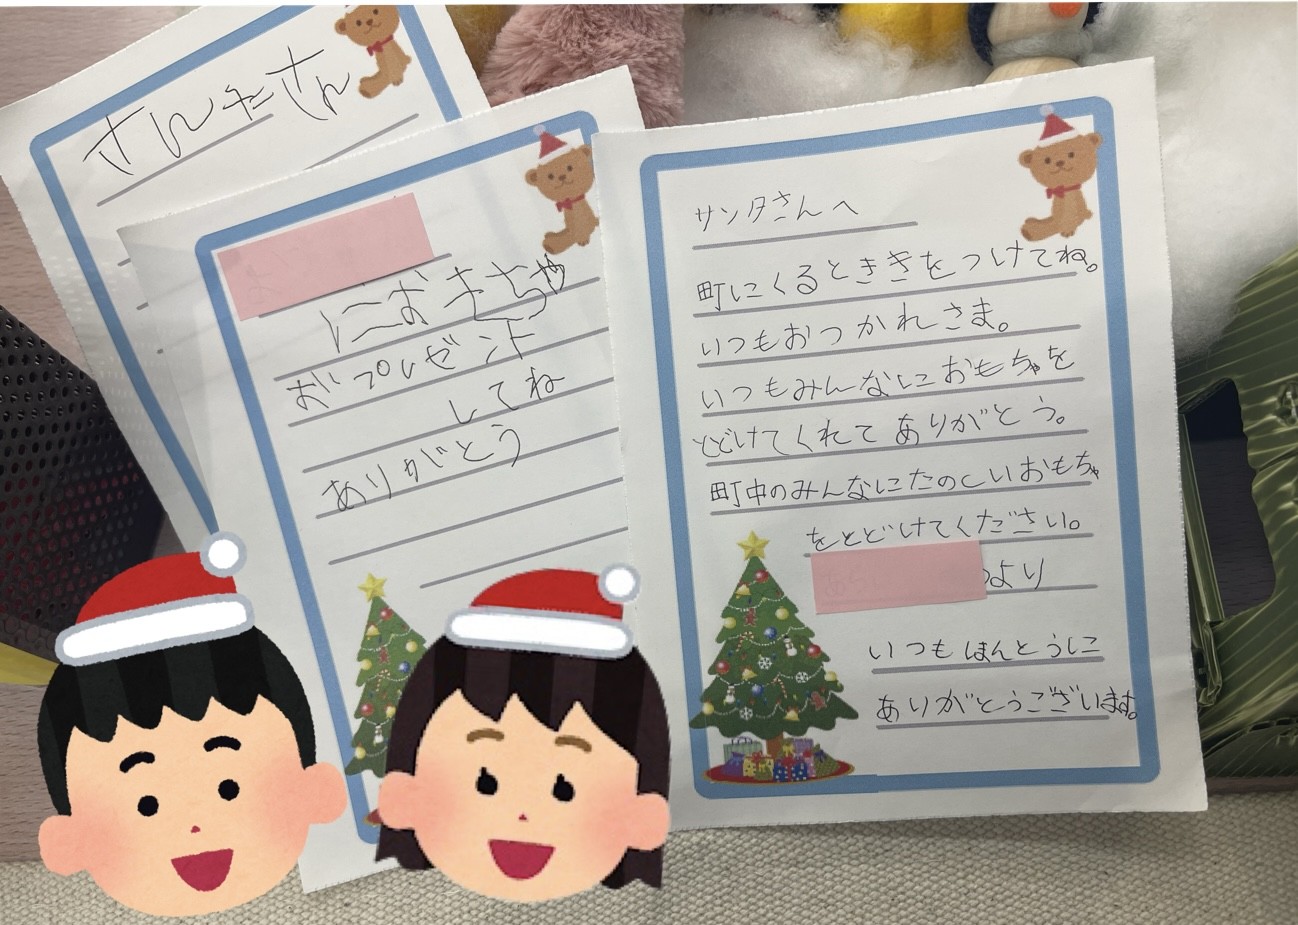 さんたさん
におもちゃ
おぷれぜんト
してね
ありがとう
サンタさんへ
町にくるとききをつけてね。
いつもおつかれさま。
いつもみんなにおもちゃを
とどけてくれてありがとう。
町中のみんなにたのしいおもちゃ
をとどけてください。
より
いつもほんとうに
ありがとうございます。